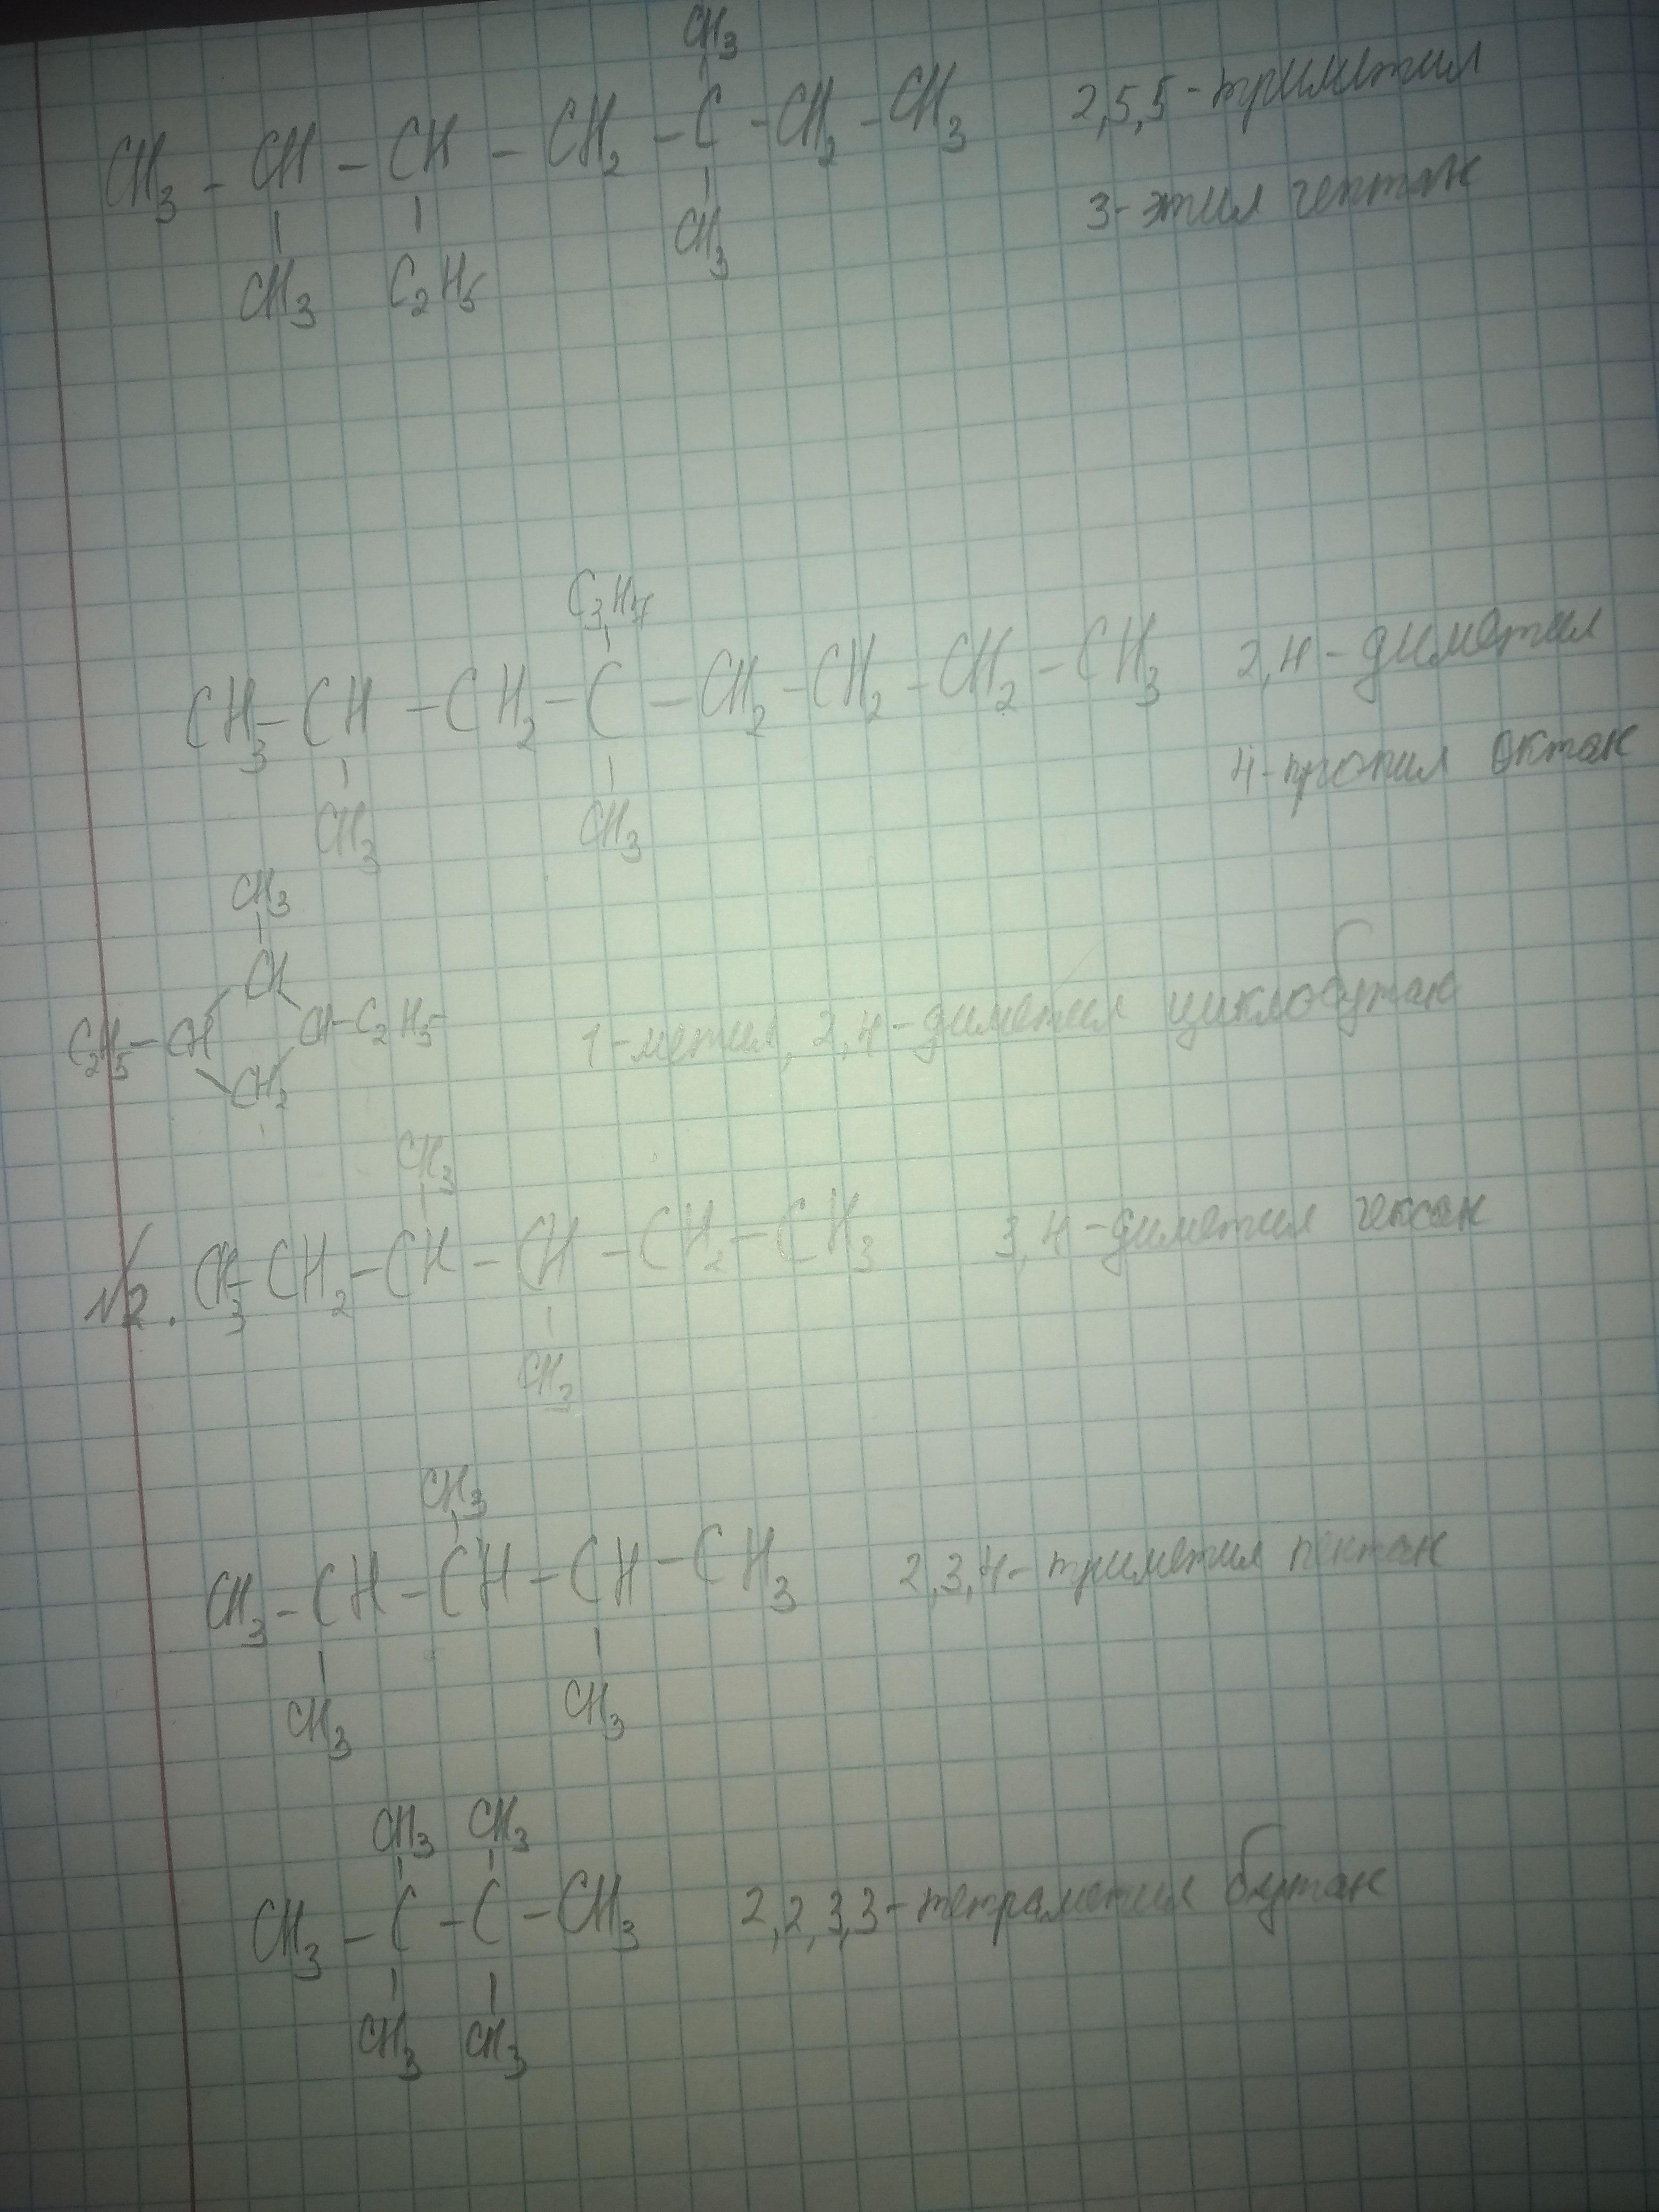 CH3
CH3 - CH - CH - CH2 - C - CH2 - CH3 2,5,5-триметил
CH3 C2H5 CH3 3-этил гептан
C3H7
CH3 - CH - CH2 - C - CH2 - CH2 - CH2 - CH3 2,4-диметил
CH3 CH3 4-пропил октан
CH3
CH
C2H5 - CH CH - C2H5 1-метил, 2,4-диметил циклобутан
CH2
CH3
№2. CH3 CH2 - CH - CH - CH2 - CH3 3,4-диметил гексан
CH3
CH3
CH3 - CH - CH - CH - CH3 2,3,4-триметил пентан
CH3 CH3
CH3 CH3
CH3 - C - C - CH3 2,2,3,3-тетраметил бутан
CH3 CH3